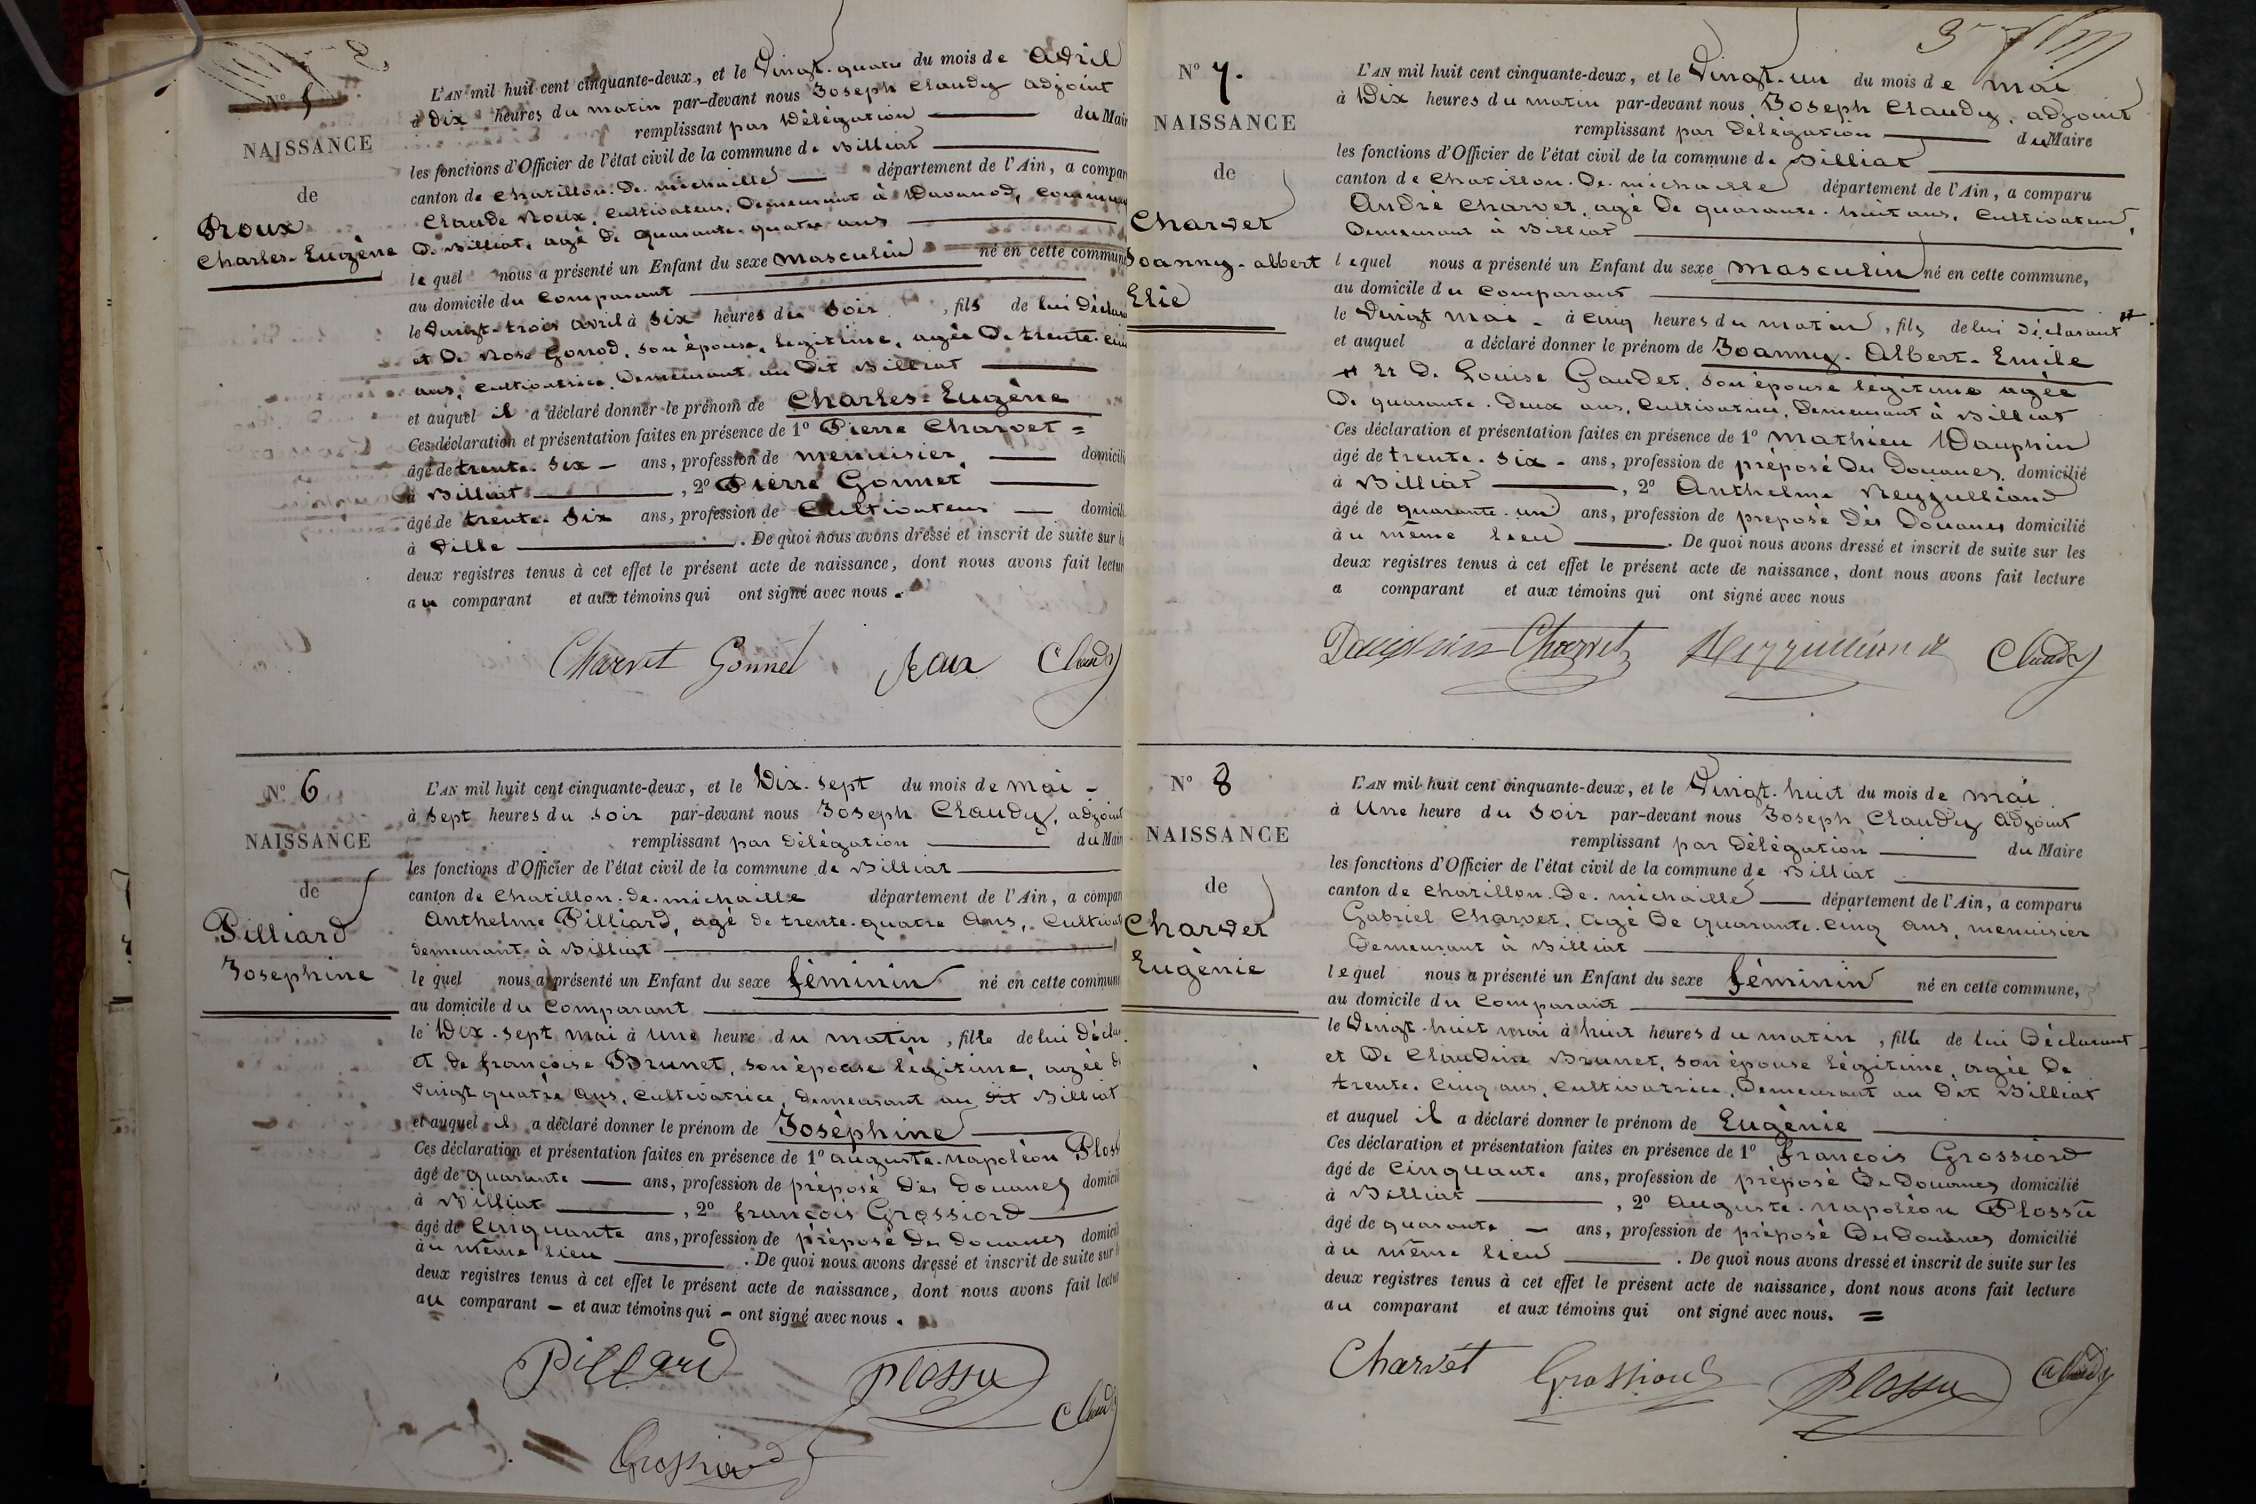 N° 5
NAISSANCE
de
Roux
Charles-Eugène
L'AN mil huit cent cinquante-deux, et le Vingt-quatre du mois de Avril
à Dix heures du matin par-devant nous Joseph Claudy adjoint
remplissant par Délégation du Mair
les fonctions d'Officier de l'état civil de la commune de Billiat
canton de Chatillon-De-michaille département de l'Ain, a compar
Claude Roux, Cultivateur, Demeurant à Davanod, commune
De Billiat, agé de quarante-quatre ans
lequel nous a présenté un Enfant du sexe masculin né en cette commune
au domicile du Comparant
le Vingt-trois avril à Six heures du Soir, fils de lui Déclara
et De Rose Gonod, son épouse, legitime, agée De trente-cinq
ans, Cultivatrice, Demeurant au Dit Billiat
et auquel il a déclaré donner le prénom de Charles-Eugène
Ces déclaration et présentation faites en présence de 1° Pierre Charvet =
âgé de trente-six - ans, profession de menuisier domicili
à Billiat, 2° Pierre Gonnet
âgé de trente-Six ans, profession de Cultivateur domicili
à Ville. De quoi nous avons dressé et inscrit de suite sur l
deux registres tenus à cet effet le présent acte de naissance, dont nous avons fait lectur
au comparant et aux témoins qui ont signé avec nous.
Charvet Gonnet Roux Claudy
N° 6
NAISSANCE
de
Pilliard
Josephine
L'AN mil huit cent cinquante-deux, et le Dix-sept du mois de mai -
à sept heures du soir par-devant nous Joseph Claudy, adjoint
remplissant par Délégation du Mair
les fonctions d'Officier de l'état civil de la commune de Billiat
canton de Chatillon-de-michaille département de l'Ain, a compar
Anthelme Pilliard, agé de trente-quatre Ans, Cultivat
demeurant à Billiat
lequel nous a présenté un Enfant du sexe féminin né en cette commun
au domicile du Comparant
le Dix-sept mai à Une heure du matin, fille de lui Décla
et de françoise Brunet, son épouse légitime, agée d
vingt quatre Ans, Cultivatrice, demeurant au dit Billiat
et auquel il a déclaré donner le prénom de Joséphine
Ces déclaration et présentation faites en présence de 1° auguste-Napoléon Ploss
âgé de quarante ans, profession de préposé Des Douanes domicil
à Billiat, 2° françois Grossiord
âgé de Cinquante ans, profession de préposé Des Douanes domicil
au même lieu. De quoi nous avons dressé et inscrit de suite sur l
deux registres tenus à cet effet le présent acte de naissance, dont nous avons fait lectur
au comparant - et aux témoins qui - ont signé avec nous.
Pillard Plossu Claudy
Grossiord
3
N° 7.
NAISSANCE
de
Charvet
Joanny-albert
Elie
L'AN mil huit cent cinquante-deux, et le Vingt-un du mois de mai
à Dix heures du matin par-devant nous Joseph Claudy, adjoint
remplissant par Délégation du Maire
les fonctions d'Officier de l'état civil de la commune de Billiat
canton de Chatillon-De-michaille département de l'Ain, a comparu
André Charvet, agé De quarante-huit ans, Cultivateur,
Demeurant à Billiat
lequel nous a présenté un Enfant du sexe masculin né en cette commune,
au domicile du Comparant
le Vingt mai - à Cinq heures du matin, fils de lui Déclarant #
et auquel a déclaré donner le prénom de Joanny-Albert-Emile
# et De Louise Gaudet, son épouse légitime agée
De quarante-deux ans, Cultivatrice, Demeurant à Billiat
Ces déclaration et présentation faites en présence de 1° Mathieu Dauphin
âgé de trente-six - ans, profession de préposé Des Douanes domicilié
à Billiat, 2° Anthelme Reyzulliand
âgé de quarante-un ans, profession de preposé Dés Douanes domicilié
au même lieu. De quoi nous avons dressé et inscrit de suite sur les
deux registres tenus à cet effet le présent acte de naissance, dont nous avons fait lecture
a comparant et aux témoins qui ont signé avec nous
Dauphin Charvet Claudy
N° 8
NAISSANCE
de
Charvet
Eugènie
L'AN mil huit cent cinquante-deux, et le Vingt-huit du mois de mai
à Une heure du Soir par-devant nous Joseph Claudy Adjoint
remplissant par Délégation du Maire
les fonctions d'Officier de l'état civil de la commune de Billiat
canton de Chatillon-De-michaille département de l'Ain, a comparu
Gabriel Charvet, agé De quarante-Cinq ans, menuisier
Demeurant à Billiat
lequel nous a présenté un Enfant du sexe féminin né en cette commune,
au domicile du Comparant
le Vingt-huit mai à huit heures du matin, fille de lui Déclarant
et De Claudine Brunet, son épouse légitime, agée De
trente-Cinq ans, Cultivatrice, Demeurant au Dit Billiat
et auquel il a déclaré donner le prénom de Eugènie
Ces déclaration et présentation faites en présence de 1° françois Grossiord
âgé de Cinquante ans, profession de préposé De Douanes domicilié
à Billiat, 2° Auguste-Napoléon Plossu
âgé de quarante - ans, profession de préposé Des Douanes domicilié
au même lieu. De quoi nous avons dressé et inscrit de suite sur les
deux registres tenus à cet effet le présent acte de naissance, dont nous avons fait lecture
au comparant et aux témoins qui ont signé avec nous. =
Charvét Grossiord Plossu Claudy